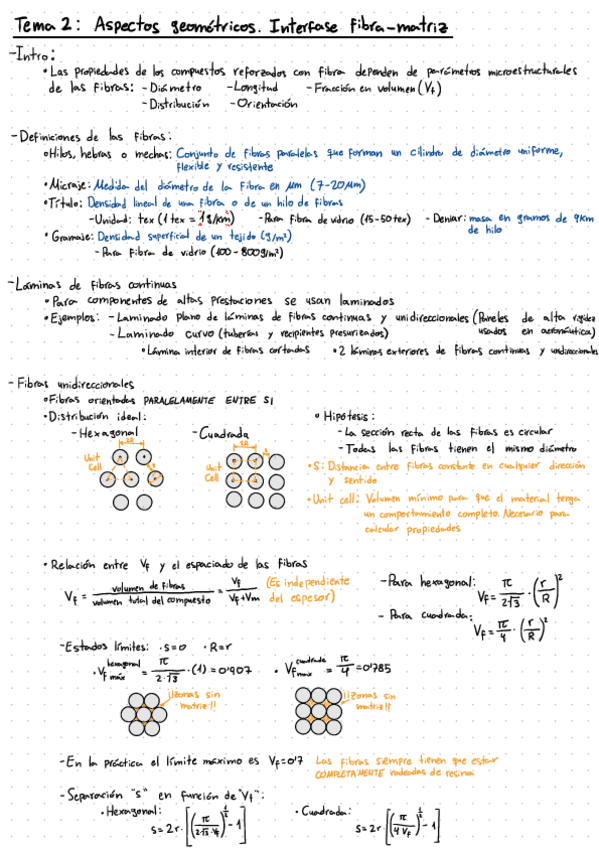 Tema 2: Aspectos geométricos. Interfase Fibra-matriz
-Intro:
• Las propiedades de los compuestos reforzados con fibra dependen de parámetros microestructurales
de las fibras: - Diámetro -Longitud -Fracción en volumen (Vf)
-Distribución -Orientación
-Definiciones de las fibras:
• Hilos, hebras o mechas: Conjunto de fibras paralelas que forman un cilindro de diámetro uniforme,
flexible y resistente
• Micraje: Medida del diámetro de la fibra en μm (7-20μm)
• Título: Densidad lineal de una fibra o de un hilo de fibras
-Unidad: tex (1 tex = 1g/km) -Para fibra de vidrio (15-50 tex) - Denier: masa en gramos de 9km
de hilo
• Gramaje: Densidad superficial de un tejido (g/m²)
- Para fibra de vidrio (100-800g/m²)
-Láminas de fibras continuas
• Para componentes de altas prestaciones se usan laminados
• Ejemplos: - Laminado plano de láminas de fibras continuas y unidireccionales (Paneles de alta rigidez
usados en aeronáutica)
- Laminado curvo (tuberías y recipientes presurizados)
• Lámina interior de fibras cortadas • 2 láminas exteriores de fibras continuas y unidireccionales
- Fibras unidireccionales
• Fibras orientadas PARALELAMENTE ENTRE SI
• Distribución ideal:
-Hexagonal -Cuadrada
2R 2R
Unit
Cell
Unit
Cell
• Hipótesis:
-La sección recta de las fibras es circular
- Todas las fibras tienen el mismo diámetro
• S: Distancia entre fibras constante en cualquier dirección
y sentido
• Unit cell: Volumen mínimo para que el material tenga
un comportamiento completo. Necesario para
calcular propiedades
• Relación entre Vf y el espaciado de las fibras
Vf = volumen de fibras / volumen total del compuesto = Vf / Vf+Vm (Es independiente
del espesor)
-Para hexagonal: Vf = π/2√3 · (r/R)²
- Para cuadrada: Vf = π/4 · (r/R)²
-Estados límites: ·s=0 ·R=r
• Vf máx hexagonal = π/2·√3 · (1) = 0'907 • Vf máx cuadrada = π/4 = 0'785
¡¡Zonas sin
matriz!!
¡¡Zonas sin
matriz!!
-En la práctica el límite máximo es Vf=0'7 Las fibras siempre tienen que estar
COMPLETAMENTE rodeadas de resina
-Separación "s" en función de "Vf":
• Hexagonal: • Cuadrada:
s=2r·[(π/2√3·Vf)^½ - 1] s=2r·[(π/4Vf)^½ - 1]